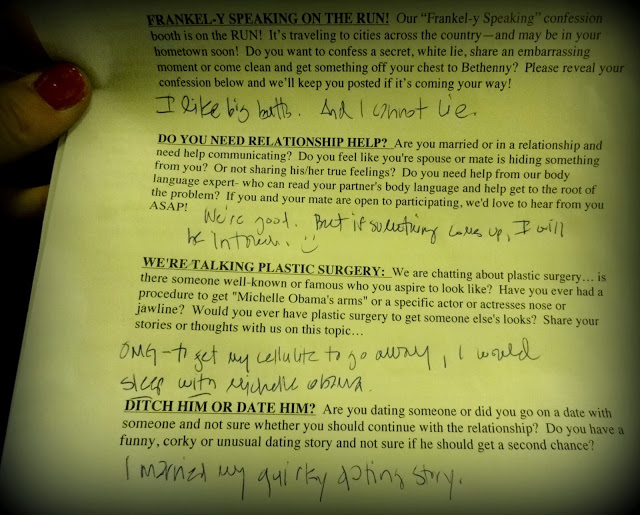 FRANKEL-Y SPEAKING ON THE RUN! Our “Frankel-y Speaking” confession
booth is on the RUN! It’s traveling to cities across the country—and may be in your
hometown soon! Do you want to confess a secret, white lie, share an embarrassing
moment or come clean and get something off your chest to Bethenny? Please reveal your
confession below and we’ll keep you posted if it’s coming your way!
I like big butts. And I cannot lie.
DO YOU NEED RELATIONSHIP HELP? Are you married or in a relationship and
need help communicating? Do you feel like you’re spouse or mate is hiding something
from you? Or not sharing his/her true feelings? Do you need help from our body
language expert- who can read your partner’s body language and help get to the root of
the problem? If you and your mate are open to participating, we’d love to hear from you
ASAP!
We're good. But if something comes up, I will
be in touch.
WE'RE TALKING PLASTIC SURGERY: We are chatting about plastic surgery… is
there someone well-known or famous who you aspire to look like? Have you ever had a
procedure to get "Michelle Obama's arms" or a specific actor or actresses nose or
jawline? Would you ever have plastic surgery to get someone else's looks? Share your
stories or thoughts with us on this topic…
OMG - to get my cellulite to go away, I would
sleep with Michelle Obama.
DITCH HIM OR DATE HIM? Are you dating someone or did you go on a date with
someone and not sure whether you should continue with the relationship? Do you have a
funny, corky or unusual dating story and not sure if he should get a second chance?
I married my quirky dating story.